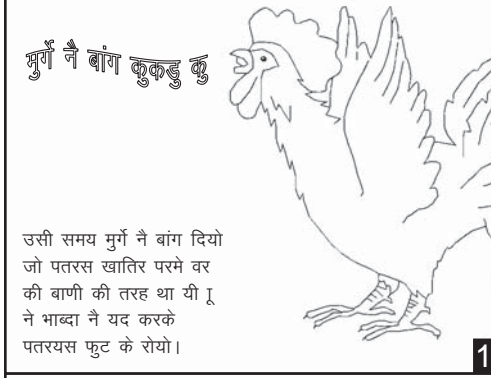 मुर्गे नै बांग कुकडु कु
उसी समय मुर्गे नै बांग दियो
जो पतरस खातिर परमे वर
की बाणी की तरह था यी ु
ने भाब्दा नै यद करके
पतरयस फुट के रोयो।
1